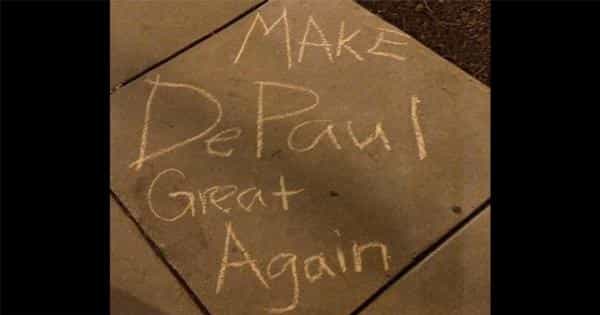 MAKE
DePaul
Great
Again